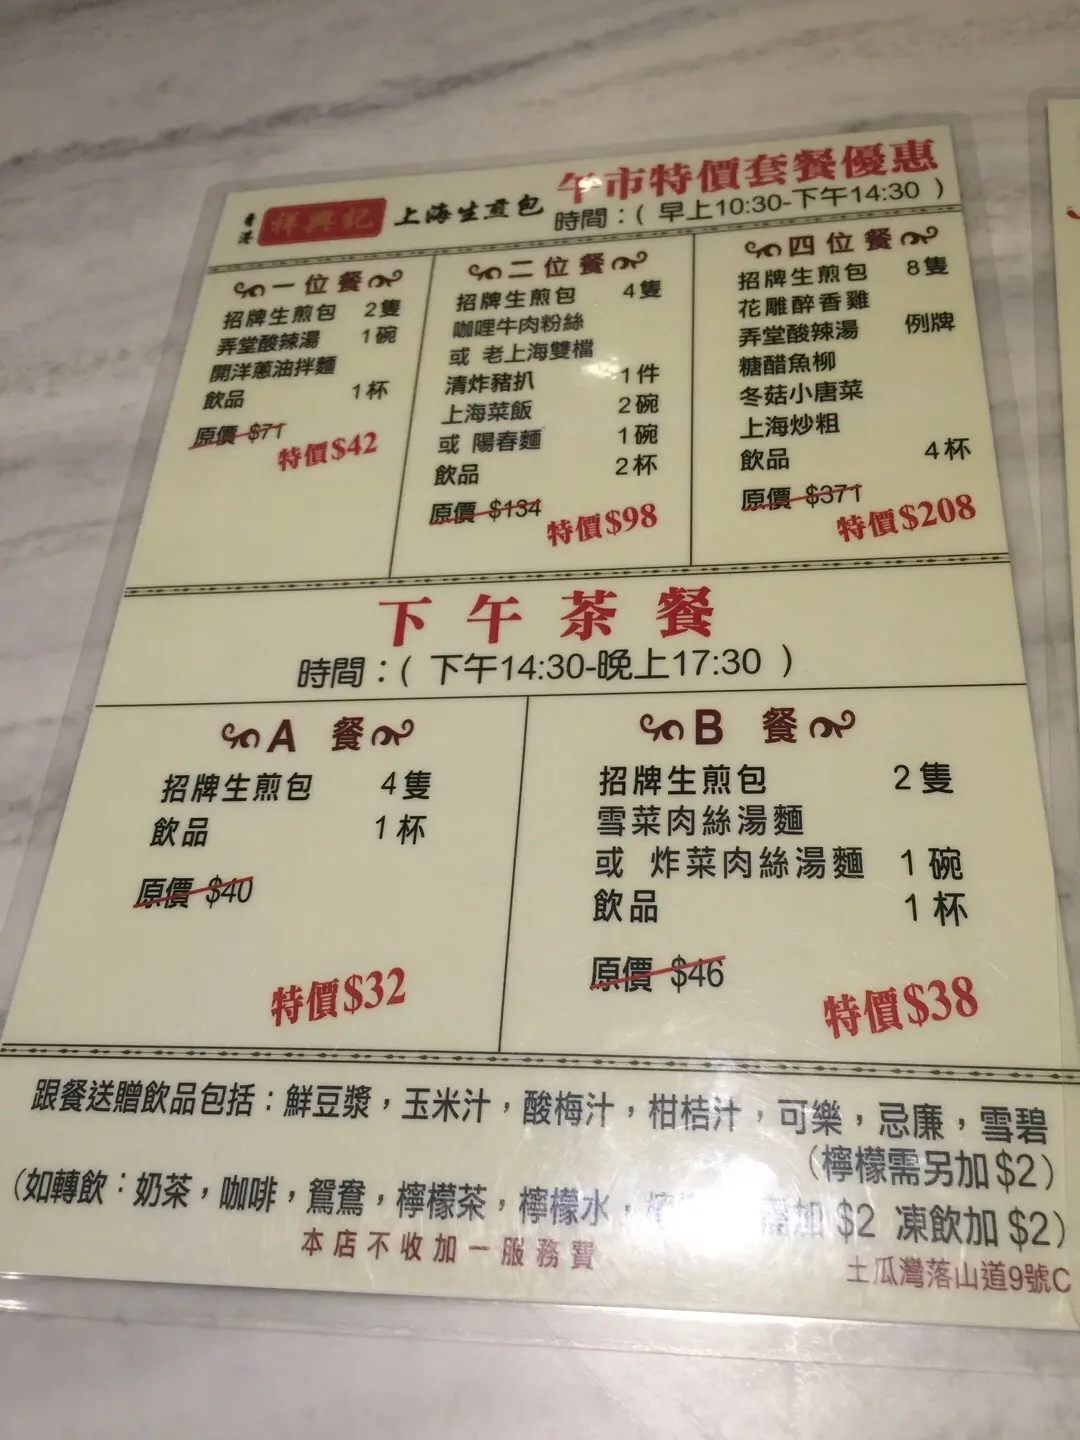 午市特價套餐優惠
香港 祥興記 上海生煎包
時間：( 早上10:30-下午14:30 )
一位餐
招牌生煎包 2隻
弄堂酸辣湯 1碗
開洋蔥油拌麵
飲品 1杯
原價 $71
特價$42
二位餐
招牌生煎包 4隻
咖哩牛肉粉絲
或 老上海雙檔
清炸豬扒 1件
上海菜飯 2碗
或 陽春麵 1碗
飲品 2杯
原價 $134
特價$98
四位餐
招牌生煎包 8隻
花雕醉香雞
弄堂酸辣湯 例牌
糖醋魚柳
冬菇小唐菜
上海炒粗
飲品 4杯
原價 $371
特價$208
下午茶餐
時間：( 下午14:30-晚上17:30 )
A 餐
招牌生煎包 4隻
飲品 1杯
原價 $40
特價$32
B 餐
招牌生煎包 2隻
雪菜肉絲湯麵
或 炸菜肉絲湯麵 1碗
飲品 1杯
原價 $46
特價$38
跟餐送贈飲品包括：鮮豆漿，玉米汁，酸梅汁，柑桔汁，可樂，忌廉，雪碧
(檸檬需另加$2)
(如轉飲：奶茶，咖啡，鴛鴦，檸檬茶，檸檬水， 加 $2 凍飲加 $2)
本店不收加一服務費
土瓜灣落山道9號C